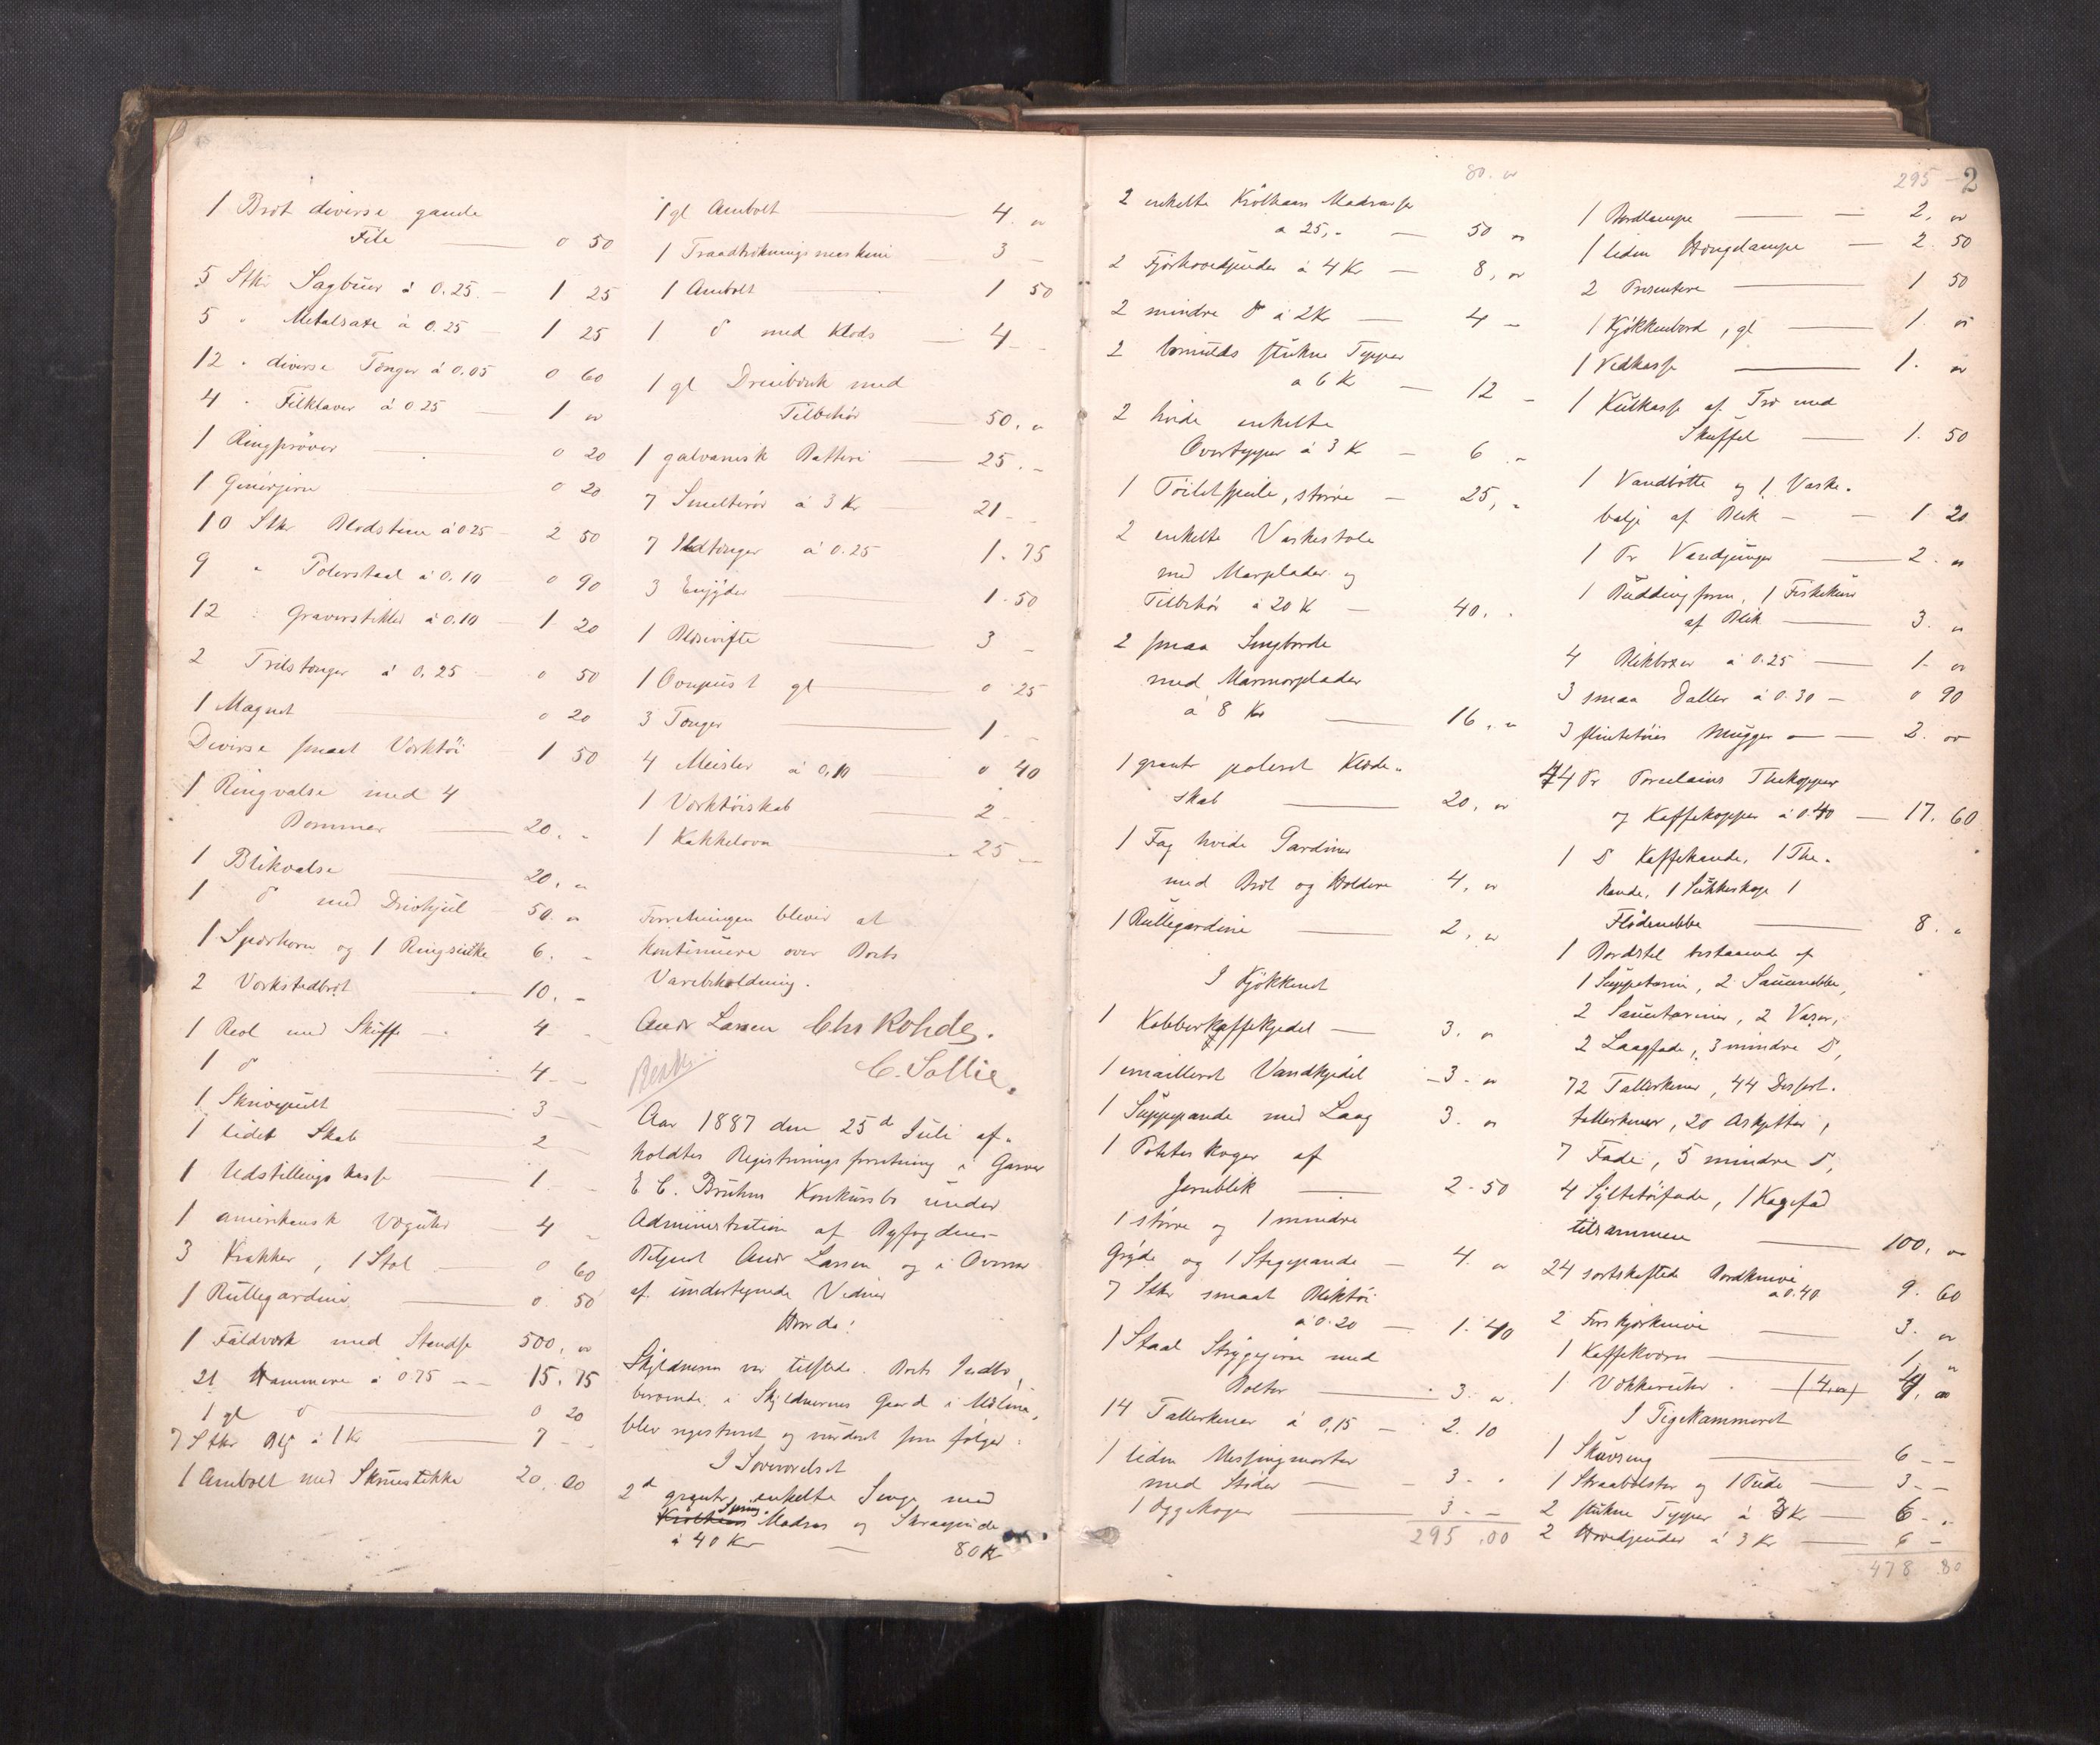 1 Bræt diverse gamle
File — 0 50
5 Stkr Sagbuer à 0.25 — 1 25
5 " Metalsaxe à 0.25 — 1 25
12 " diverse Tænger à 0.05 0 60
4 " Filklaver à 0 25 — 1 "
1 Ringprøver — 0 20
1 — 0 20
10 Stkr Blodstene à 0 25 — 2 50
9 " Polerstaal à 0,10 0 90
12 " Gravestikler à 0.10 — 1 20
2 Trilstænger à 0,25 — 0 50
1 Magnet — 0 20
Diverse smaat Værktøi — 1 50
1 Ringvalse med 4
Bommer — 20. "
1 Blikvalse — 20. "
1 do med Drivhjul — 50. "
1 Sperhorn og 1 6. "
2 Værkstedbræt — 10. "
1 Reol med Skuffe — 4 "
1 do — 4 "
1 Skrivepult — 3 "
1 lidet Skab — 2 "
1 Udstillingskasse — 1 "
1 amerikansk Væguhr — 4 "
3 Krakker, 1 Stol — 0 60
1 Rullegardin — 0. 50
1 Faldværk med Standse 500, "
21 Hammere à 0.75 — 15. 75
1 gl do — 0 20
7 Stkr Bly à 1 Kr — 7 "
1 Ambolt med Skruestikke 20. 00
1 gl Ambolt — 4. "
1 Traadtrækningsmaskine 3 —
1 Ambolt — 1 50
1 do med Klods — 4 —
1 gl Dreiebænk med
Tilbehør — 50. "
1 galvanisk Batteri — 25. "
7 Smelterør à 3 Kr — 21 —
7 Ildtænger à 0.25 1. 75
3 — 1. 50
1 Blæsevifte — 3 —
1 Ovnpust gl — 0 25
3 Tænger — 1 —
4 Meisler à 0,10 — 0 40
1 Værktøiskab — 2 —
1 Kakkelovn — 25 —
Forretningen bliver at
kontinuere over Boets
Varebeholdning.
Andr Larsen Chr Rohde.
C. Sollie.
Aar 1887 den 25d Juli af-
holdtes Registreringsforretning i Garver
E C. Bruhns Konkursbo under
Administration af Byfogdens
Betjent Andr Larsen og i Overvær
af undertegnede Vidner
Hvorda!
Skyldneren var tilstede. Boets Indbo,
beroende i Skyldnerens Gaard i
blev registreret og vurderet som følger:
I Soveværelset
2d enkelte Senge med
Krølhaars Spring Madras og Skraapude
à 40 Kr — 80 Kr
80. "
2 enkelte Krølhaars Madrasse
a 25,- — 50 "
2 Fjærhovedpuder à 4 Kr — 8, "
2 mindre do à 2 Kr — 4 —
2 bomulds stukne Tepper
a 6 Kr — 12 —
2 hvide enkelte
Overtepper à 3 Kr — 6 "
1 Toiletspeile, større — 25, "
2 enkelte Vaskestole
med Marplader og
Tilbehør à 20 Kr — 40. "
2 smaa Sengborde
med Marmorplader
à 8 Kr — 16. "
1 poleret Klæde-
skab — 20. "
1 Fag hvide Gardiner
med Bræt og Holdere 4. "
1 Rullegardine — 2. "
I Kjøkkenet
1 Kobberkaffekjedel — 3. "
1 emailleret Vandkjedel — 3. "
1 Suppepande med Laag 3. "
1 Poteteskoger af
Jernblik — 2. 50
1 større og 1 mindre
Gryde og 1 Stegepande — 4. "
7 Stkr smaat Bliktøi
à 0.20 — 1. 40
1 Staal Strygejern med
Bolter — 3. "
14 Tallerkener à 0,15 — 2. 10
1 liden Messingmorter
med Støder — 3 "
1 Æggekoger — 3 —
295.00
295 — 2
1 Bordlampe — 2. "
1 liden Hængelampe — 2. 50
2 Presentere — 1 50
1 Kjøkkenbord, gl — 1. "
1 Vedkasse — 1. "
1 Kulkasse af Træ med
Skuffel — 1. 50
1 Vandbøtte og 1 Vaske-
balje af Blik — 1 20
1 Pr Vandspænger — 2. "
1 Buddingform, 1 Fiskekum
af Blik — 3. "
4 Blikboxer à 0.25 — 1. "
3 smaa Daller à 0.30 — 0 90
3 flintetøies Mugger — 2. "
44 Pr Porcelains Thekopper
og Kaffekopper à 0.40 — 17. 60
1 do Kaffekande, 1 The-
kande, 1 Sukkerkop 1
Flødenebbe — 8. "
1 Bordstel bestaaende af
1 Suppeterrin, 2 Saucenebber,
2 Sauceterriner, 2 Vaser,
2 Laagfade, 3 mindre do,
72 Tallerkener, 44 Dessert-
tallerkener, 20 Asjetter,
7 Fade, 5 mindre do,
4 Syltetøifade, 1 Kagefad
tilsammen — 100. "
24 sortskeftede Bordknive
à 0.40 9. 60
2 Forskjærknive — 3. "
1 Kaffekværn — 1. "
1 Vækkeruhr — (4,00) 4, 00
I Pigekammeret
1 Skuvseng — 6 —
1 Straabolster og 1 Pude — 3 —
2 stukne Tepper à 3 Kr — 6 —
2 Hovedpuder à 3 Kr — 6 —
478 80